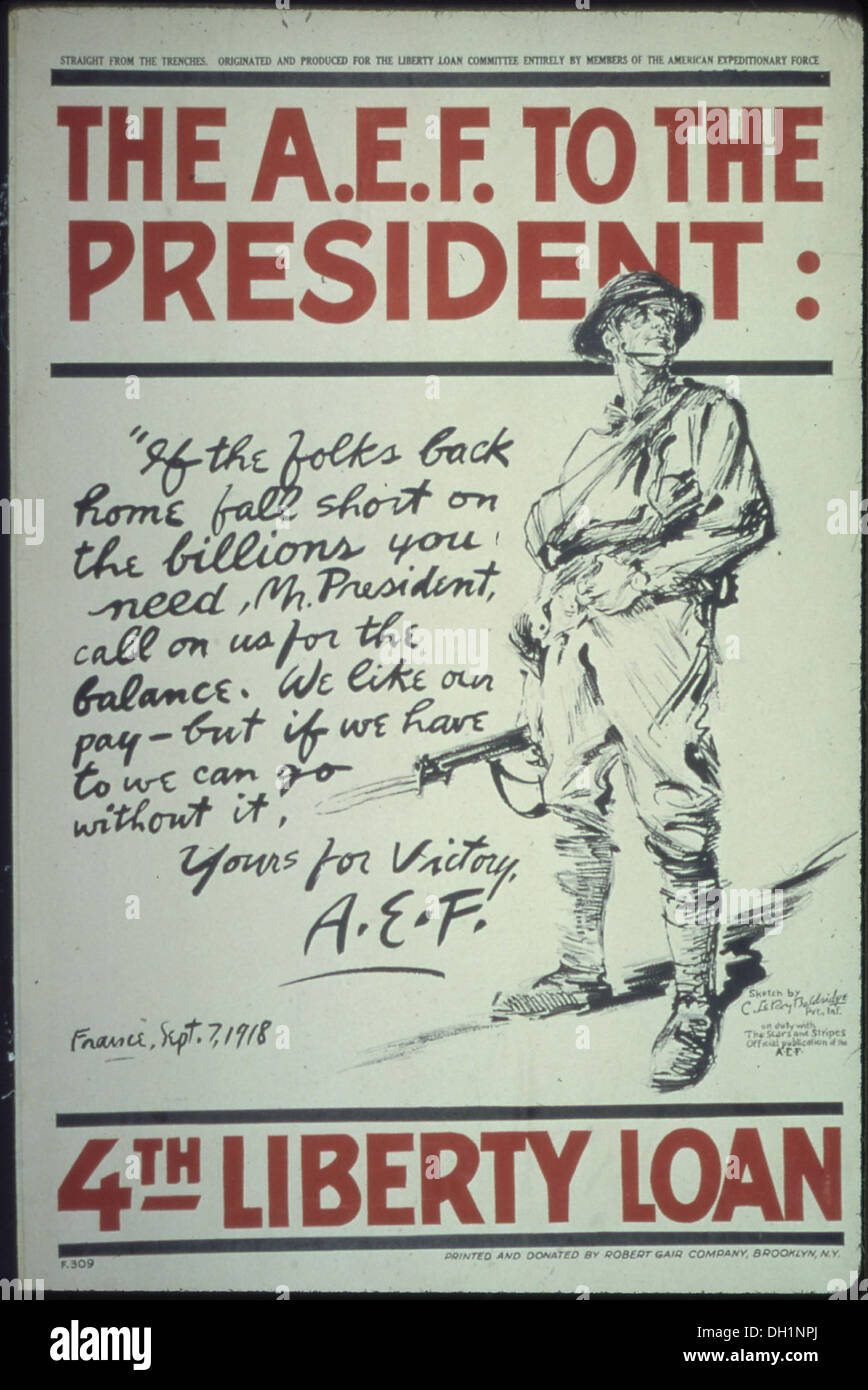 STRAIGHT FROM THE TRENCHES. ORIGINATED AND PRODUCED FOR THE LIBERTY LOAN COMMITTEE ENTIRELY BY MEMBERS OF THE AMERICAN EXPEDITIONARY FORCE
THE A.E.F. TO THE
PRESIDENT :
"If the folks back
home fall short on
the billions you
need, Mr. President,
call on us for the
balance. We like our
pay - but if we have
to we can go
without it,
Yours for Victory,
A.E.F.
France, Sept. 7, 1918
Sketch by
C. LeRoy Baldridge
Pvt., Inf.
on duty with
The Stars and Stripes
Official publication of the
A.E.F.
4TH LIBERTY LOAN
F.309
PRINTED AND DONATED BY ROBERT GAIR COMPANY, BROOKLYN, N.Y.
alamy
Image ID: DH1NPJ
www.alamy.com